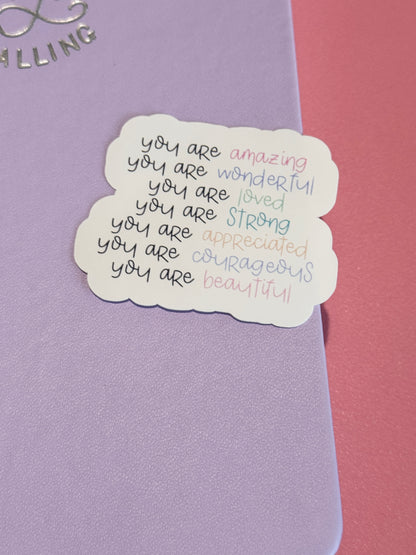 you are amazing
you are wonderful
you are loved
you are strong
you are appreciated
you are courageous
you are beautiful